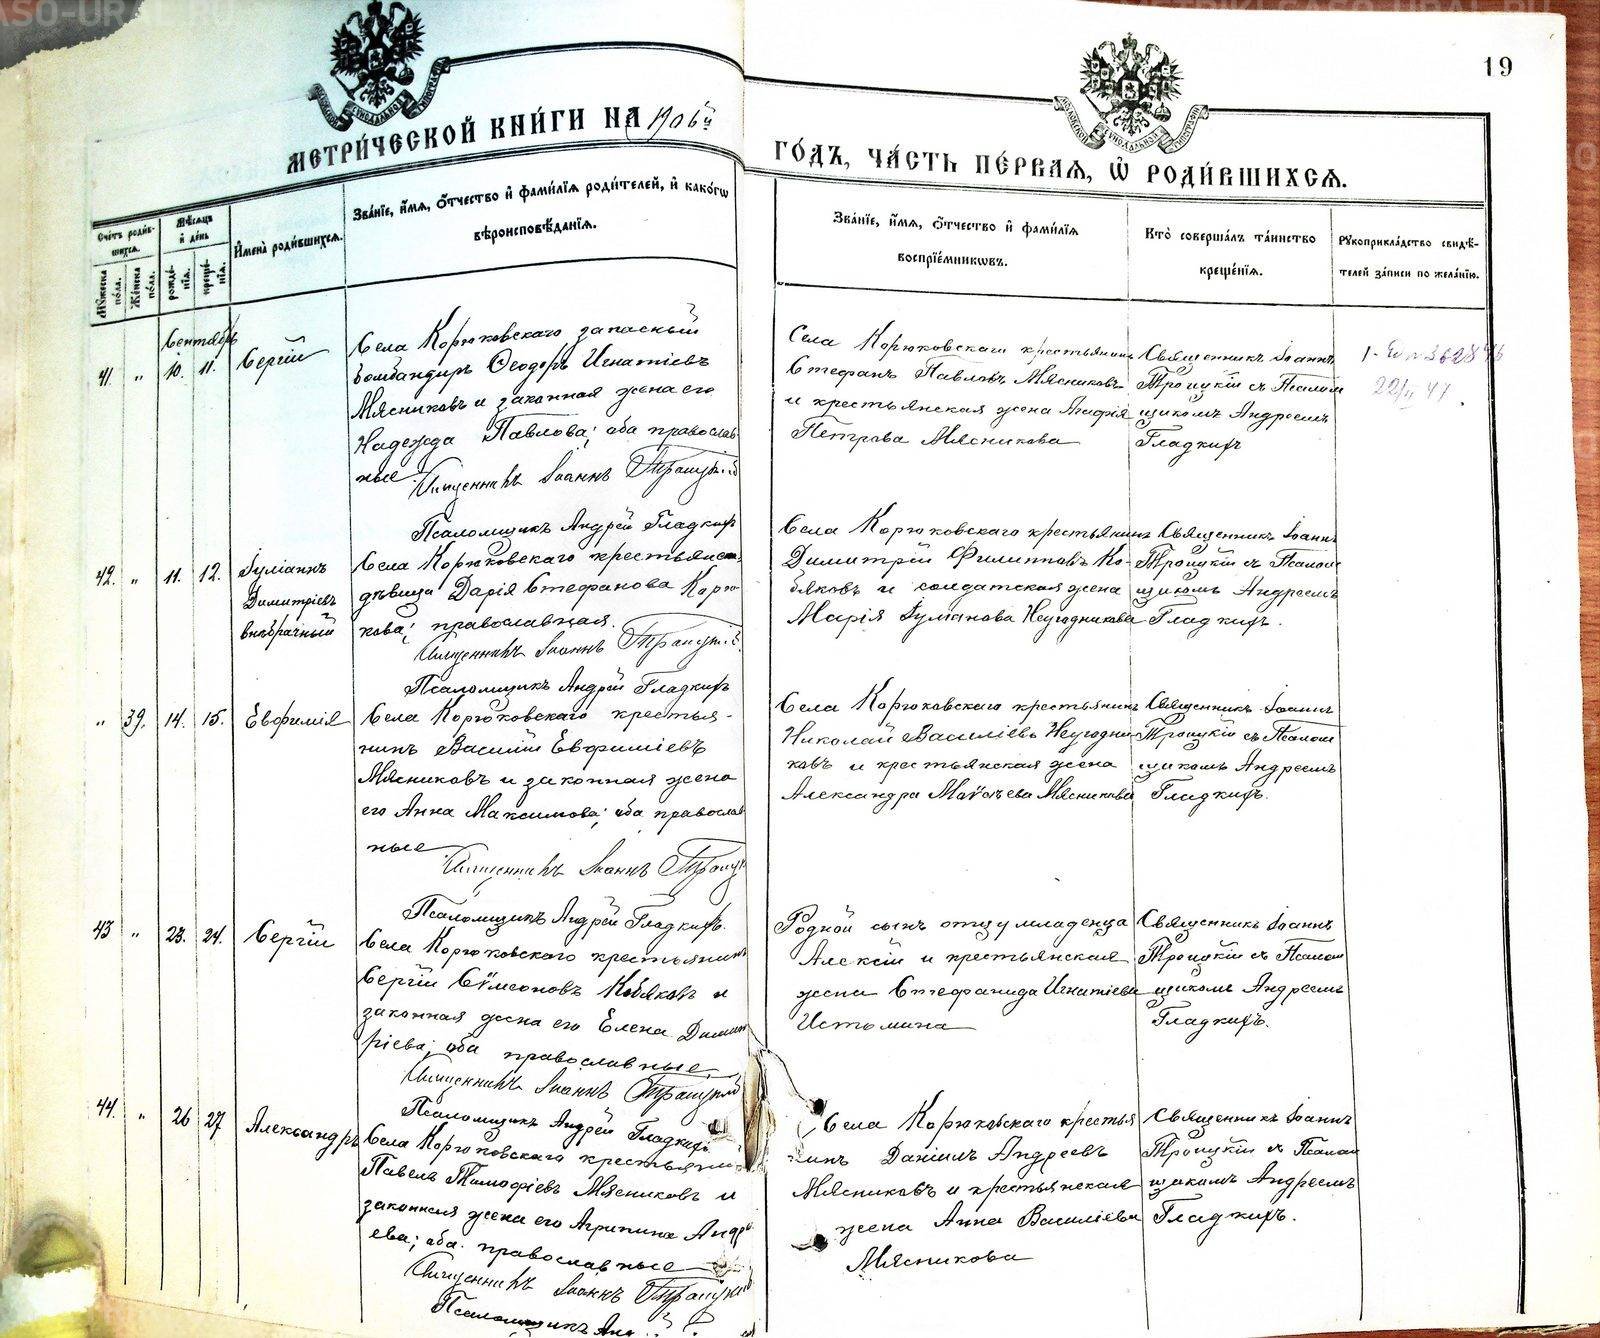 METRIKI.GASO-URAL.RU
19
МЕТРИ́ЧЕСКОЙ КНИ́ГИ НА 1906й
ГО́ДЪ, ЧА́СТЬ ПЕ́РВАЯ, Ѽ РОДИ́ВШИХСЯ.
Сче́тъ роди́вшихся.
Му́жеска по́ла.
Же́нска по́ла.
Мѣ́сяцъ и де́нь
рожде́нія.
креще́нія.
Имена̀ роди́вшихся.
Зва́ніе, и́мя, ѻ́тчество и фами́лія роди́телей, и како́гѡ
вѣроисповѣ́данія.
Зва́ніе, и́мя, ѻ́тчество и фами́лія
воспріе́мникѡвъ.
Кто̀ соверша́лъ та́инство
креще́нія.
Рукоприкла́дство свидѣ́-
телей за́писи по жела́нію.
Сентябрь
41. " 10. 11. Сергій
Села Корюковскаго запасный
бомбандиръ Ѳеодоръ Игнатіевъ
Мясниковъ и законная жена его
Надежда Павлова; оба православ-
ные
Священникъ Іоаннъ Троицкій
Псаломщикъ Андрей Гладкихъ
Села Корюковскаго крестьянинъ
Стефанъ Павловъ Мясниковъ
и крестьянская жена Агафія
Петрова Мясникова
Священникъ Іоаннъ
Троицкій съ Псалом
щикомъ Андреемъ
Гладкихъ
42. " 11. 12. Іуліанъ
Димитріевъ
внѣбрачный
Села Корюковскаго крестьянск.
дѣвица Дарія Стефанова Корю
кова; православная.
Священникъ Іоаннъ Троицкій
Псаломщикъ Андрей Гладкихъ
Села Корюковскаго крестьянинъ
Димитрій Филипповъ Ко-
бяковъ и солдатская жена
Марія Неугодникова
Священникъ Іоаннъ
Троицкій съ Псалом
щикомъ Андреемъ
Гладкихъ.
" 39. 14. 15. Евфимія
Села Корюковскаго крестья-
нинъ Василій Евфиміевъ
Мясниковъ и законная жена
его Анна Максимова; оба православ
ные
Священникъ Іоаннъ Троицк
Псаломщикъ Андрей Гладкихъ.
Села Корюковскаго крестьянинъ
Николай Василіевъ Неугодни-
ковъ и крестьянская жена
Александра Мясникова
Священникъ Іоаннъ
Троицкій съ Псалом
щикомъ Андреемъ
Гладкихъ.
43 " 23. 24. Сергій
Села Корюковскаго крестьянинъ
Сергій Сѵмеоновъ Кобяковъ и
законная жена его Елена Димит
ріева; оба православные
Священникъ Іоаннъ Троицкій
Псаломщикъ Андрей Гладкихъ
Родной сынъ отцу младенца
Алексій и крестьянская
жена Стефанида Игнатіева
Истомина
Священникъ Іоаннъ
Троицкій съ Псалом
щикомъ Андреемъ
Гладкихъ.
44. " 26 27 Александръ
Села Корюковскаго крестьянинъ
Павелъ Тимофіевъ Мясниковъ и
законная жена его Агрипина Андре
ева; оба православные
Священникъ Іоаннъ Троицкій
Псаломщикъ Анд
Села Корюковскаго крестья
нинъ Даніилъ Андреевъ
Мясниковъ и крестьянская
жена Анна Василіева
Мясникова
Священникъ Іоаннъ
Троицкій съ Псалом
щикомъ Андреемъ
Гладкихъ.